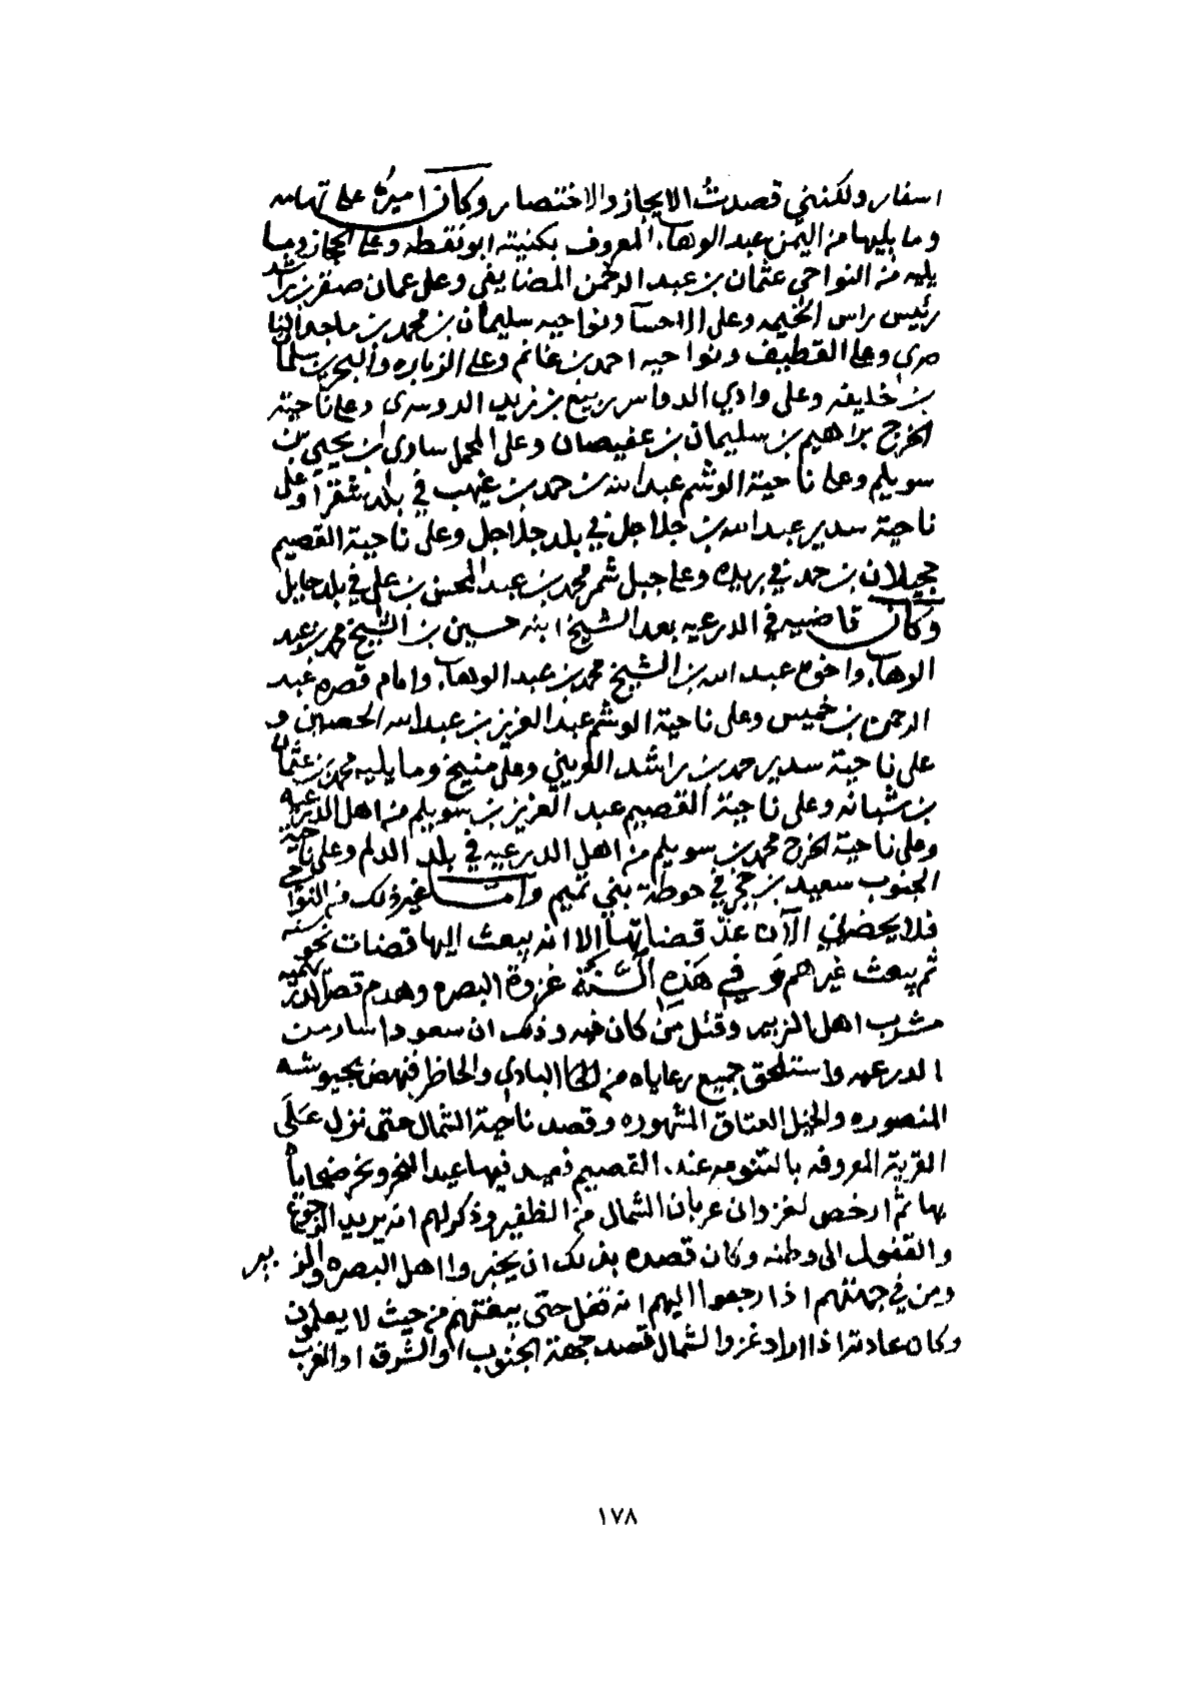 اسفار ولكنني قصدت الايجاز والاختصار وكان اميره على تهامه
وما يليها من اليمن عبد الوهاب المعروف بكنيته ابو نقطه وعلى الحجاز وما
يليه من النواحي عثمان بن عبد الرحمن المضايفي وعلى عمان صقر بن راشد
رئيس راس الخيمه وعلى الاحسا ونواحيه سليمان بن محمد بن ماجد النا
صري وعلى القطيف ونواحيه احمد بن غانم وعلى الزباره والبحرين سلمان
بن خليفه وعلى وادي الدواسر ربيع بن زيد الدوسري وعلى ناحية
الخرج براهيم بن سليمان بن عفيصان وعلى المحمل ساري بن يحيى بن
سويلم وعلى ناحية الوشم عبد الله بن حمد بن غيهب في بلد شقرا وعلى
ناحية سدير عبد الله بن جلاجل في بلد جلاجل وعلى ناحية القصيم
حجيلان بن حمد في بريده وعلى جبل شمر محمد بن عبد المحسن بن علي في بلد حايل
وكان قاضيه في الدرعيه بعد الشيخ ابنه حسين بن الشيخ محمد بن عبد
الوهاب واخوه عبد الله بن الشيخ محمد بن عبد الوهاب وامام قصره عبد
الرحمن بن خميس وعلى ناحية الوشم عبد العزيز بن عبد الله الحصين و
على ناحية سدير حمد بن راشد العريني وعلى منيخ وما يليه محمد بن عثمان
بن شبانه وعلى ناحية القصيم عبد العزيز بن سويلم من اهل الدرعيه
وعلى ناحية الخرج محمد بن سويلم من اهل الدرعيه في بلد الدلم وعلى ناحية
الجنوب سعيد بن حجي في حوطة بني تميم واما غير ذلك من النواحي
فلا يحضرني الآن عد قضاتها الا انه يبعث اليها قضات نحو سنه
ثم يبعث غيرهم وفي هذه السنة غزوة البصره وهدم قصر الدريهميه
مشرب اهل الزبير وقتل من كان فيه وذلك ان سعودا سار من
الدرعيه واستلحق جميع رعاياه من البادي والحاظر فنهض بجيوشه
المنصوره والخيل العتاق المشهوره وقصد ناحية الشمال حتى نزل على
القرية المعروفه بالتنومه عند القصيم فعيد فيها عيد النحر ونحر ضحاياه
بها ثم ارخص لغزوان عربان الشمال من الظفير وذكر لهم انه يريد الرجوع
والقفول الى وطنه وكان قصده بذلك ان يخبروا اهل البصره والزبير
ومن في جهتهم اذا رجعوا اليهم انه قفل حتى يبغتهم من حيث لا يعلمون
وكان عادته اذا اراد غزو الشمال قصد جهة الجنوب او الشرق او الغرب
١٧٨